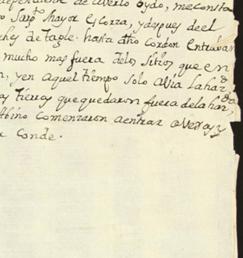 de averlo oydo, me consta
Sarg.to mayor Escorza, y despues de el
de Tagle. hasta dho cordon Entravan
mucho mas fuera delos sitios que en
n, y en aquel tiempo solo avia Lahaz.da
tierras que quedaron fuera dela haz.da
comenzaron aentrar overas y
Conde.